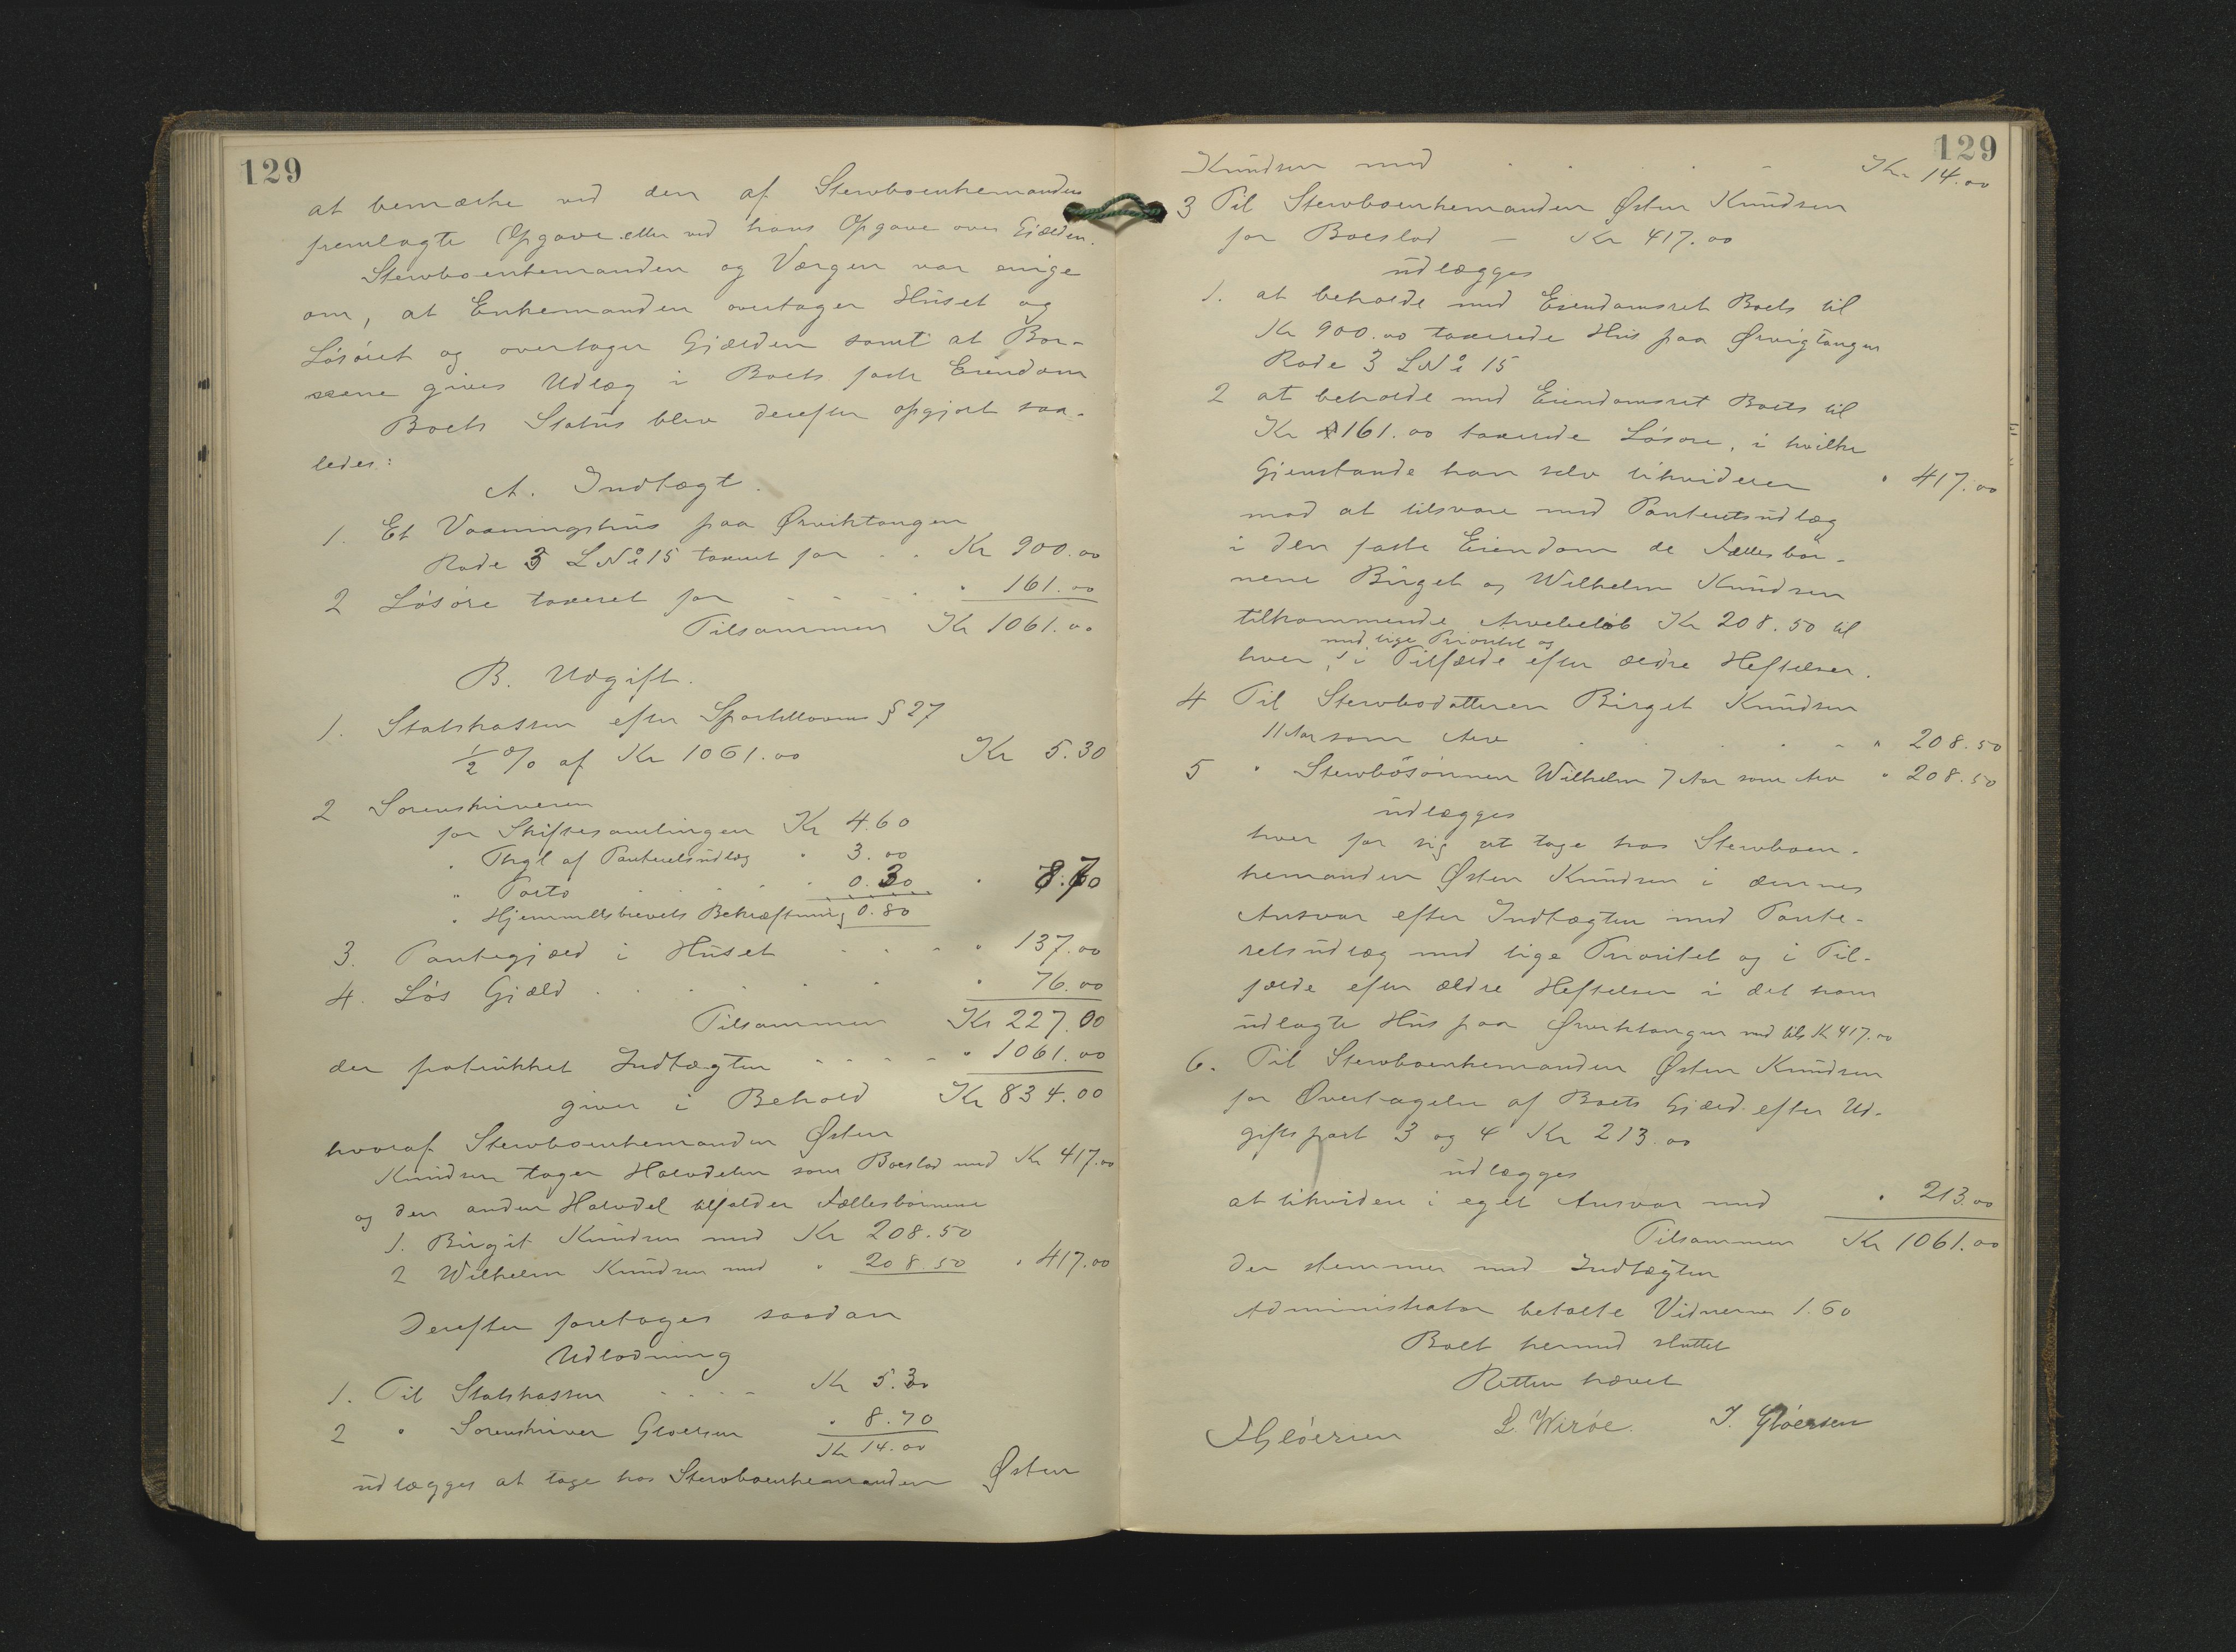 129
at bemærke ved den af Stervboenkemanden
fremlagte Opgave eller ved hans Opgave over Gjælden.
Stervboenkemanden og Værgen var enige
om, at Enkemanden overtager Huset og
Løsøret og overtager Gjælden samt at Bør-
nene gives Udlæg i Boets faste Eiendom
Boets Status blev derefter opgjort saa-
ledes:
A. Indtægt.
1. Et Vaaningshus paa Ørviktangen
Rode 3 L№ 15 taxeret for . . Kr 900.00
2 Løsøre taxeret for - - - - " 161.00
Tilsammen Kr 1061.00
B. Udgift.
1. Statskassen efter Sportelloven § 27
½ % af Kr 1061.00 Kr 5.30
2 Sorenskriveren
for Skiftesamlingen Kr 4.60
" Thgl af Panteretsudlæg " 3.00
" Porto . . . . " 0.30 " 8.70
" Hjemmelsbrevets Bekræftning 0.80
3. Pantegjæld i Huset - - - - " 137.00
4. Løs Gjæld . . . . . " 76.00
Tilsammen Kr 227.00
der fratrukket Indtægten - - - - " 1061.00
giver i Behold Kr 834.00
hvoraf Stervboenkemanden Østen
Knudsen tager Halvdelen som Boeslod med Kr 417.00
og den anden Halvdel tilfalder Fællesbørnene
1. Birgit Knudsen med Kr 208.50
2 Wilhelm Knudsen med " 208.50 " 417.00
Derefter foretages saadan
Udlodning
1. Til Statskassen - - - - Kr 5.30
2 " Sorenskriver Gløersen " 8.70
Kr 14.00
udlægges at tage hos Stervboenkemanden Østen
129
Knudsen med . . . . - Kr 14.00
3 Til Stervboenkemanden Østen Knudsen
for Boeslod — Kr 417.00
udlægges
1. at beholde med Eiendomsret Boets til
Kr 900.00 taxerede Hus paa Ørvigtangen
Rode 3 L№ 15
2 at beholde med Eiendomsret Boets til
Kr 161.00 taxerede Løsøre, i hvilke
Gjenstande han selv likviderer " 417.00
mod at tilsvare med Panteretsudlæg
i den faste Eiendom de Fællesbør-
nene Birget og Wilhelm Knudsen
tilkommende Arvebeløb Kr 208.50 til
med lige Prioritet og
hver, i Tilfælde efter ældre Heftelser.
4 Til Stervbodatteren Birget Knudsen
11 Aar som Arv . . . . - " 208.50
5 " Stervbosønnen Wilhelm 7 Aar som Arv " 208.50
udlægges
hver for sig at tage hos Stervboen-
kemanden Østen Knudsen i dennes
Ansvar efter Indtægten med Pante-
retsudlæg med lige Prioritet og i Til-
fælde efter ældre Heftelser i det ham
udlagte Hus paa Ørviktangen med tils Kr 417.00
6. Til Stervboenkemanden Østen Knudsen
for Overtagelse af Boets Gjæld efter Ud-
giftspost 3 og 4 Kr 213.00
udlægges
at likvidere i eget Ansvar med " 213.00
Tilsammen Kr 1061.00
der stemmer med Indtægten
Administrator betalte Vidnerne 1.60
Boet hermed sluttet
Retten hævet
Gløersen L. Wirøe. J. Gløersen